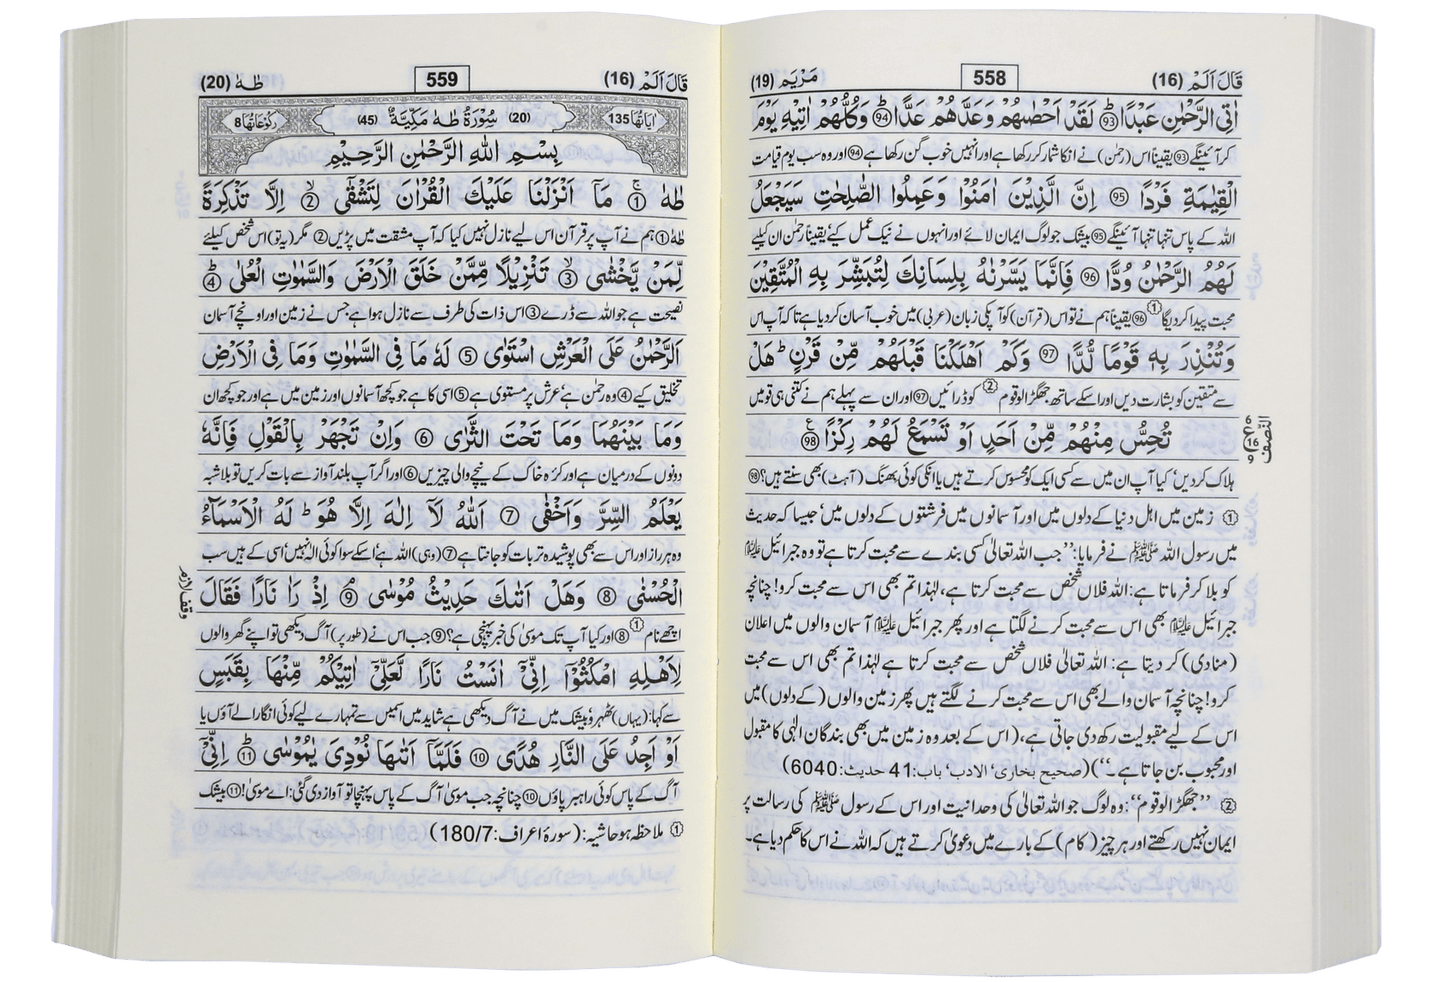 قَالَ اَلَمْ (16)
558
مَرْيَم (19)
اٰتِی الرَّحْمٰنِ عَبْدًا ﴿93﴾ لَقَدْ اَحْصٰىهُمْ وَعَدَّهُمْ عَدًّا ﴿94﴾ وَكُلُّهُمْ اٰتِیْهِ یَوْمَ
کر آئینگے ﴿93﴾ یقیناً اس (رحمٰن) نے انکا شمار کر رکھا ہے اور انہیں خوب گن رکھا ہے ﴿94﴾ اور وہ سب یوم قیامت
الْقِیٰمَةِ فَرْدًا ﴿95﴾ اِنَّ الَّذِیْنَ اٰمَنُوْا وَعَمِلُوا الصّٰلِحٰتِ سَیَجْعَلُ
اللہ کے پاس تنہا تنہا آئینگے ﴿95﴾ بیشک جو لوگ ایمان لائے اور انہوں نے نیک عمل کیے یقیناً رحمٰن ان کیلئے
لَهُمُ الرَّحْمٰنُ وُدًّا ﴿96﴾ فَاِنَّمَا یَسَّرْنٰهُ بِلِسَانِكَ لِتُبَشِّرَ بِهِ الْمُتَّقِیْنَ
محبت پیدا کر دیگا ① ﴿96﴾ یقیناً ہم نے تو اس (قرآن) کو آپکی زبان (عربی) میں خوب آسان کر دیا ہے تاکہ آپ اس
وَتُنْذِرَ بِهٖ قَوْمًا لُّدًّا ﴿97﴾ وَكَمْ اَهْلَكْنَا قَبْلَهُمْ مِّنْ قَرْنٍ ط هَلْ
سے متقین کو بشارت دیں اور اسکے ساتھ جھگڑالو قوم ② کو ڈرائیں ﴿97﴾ اور ان سے پہلے ہم نے کتنی ہی قومیں
تُحِسُّ مِنْهُمْ مِّنْ اَحَدٍ اَوْ تَسْمَعُ لَهُمْ رِكْزًا ﴿98﴾
النصف
ہلاک کر دیں، کیا آپ ان میں سے کسی ایک کو محسوس کرتے ہیں یا انکی کوئی بھنگ (آہٹ) بھی سنتے ہیں؟ ﴿98﴾
① زمین میں اہل دنیا کے دلوں میں اور آسمانوں میں فرشتوں کے دلوں میں، جیسا کہ حدیث
میں رسول اللہ ﷺ نے فرمایا: ''جب اللہ تعالیٰ کسی بندے سے محبت کرتا ہے تو وہ جبرائیل علیہ السلام
کو بلا کر فرماتا ہے: اللہ فلاں شخص سے محبت کرتا ہے، لہٰذا تم بھی اس سے محبت کرو! چنانچہ
جبرائیل علیہ السلام بھی اس سے محبت کرنے لگتا ہے اور پھر جبرائیل علیہ السلام آسمان والوں میں اعلان
(منادی) کر دیتا ہے: اللہ تعالیٰ فلاں شخص سے محبت کرتا ہے لہٰذا تم بھی اس سے محبت
کرو! چنانچہ آسمان والے بھی اس سے محبت کرنے لگتے ہیں پھر زمین والوں (کے دلوں) میں
اس کے لیے مقبولیت رکھ دی جاتی ہے، (اس کے بعد وہ زمین میں بھی بندگان الٰہی کا مقبول
اور محبوب بن جاتا ہے۔'') (صحیح بخاری، الادب، باب: 41 حدیث: 6040)
② ''جھگڑالو قوم'': وہ لوگ جو اللہ تعالیٰ کی وحدانیت اور اس کے رسول ﷺ کی رسالت پر
ایمان نہیں رکھتے اور ہر چیز (کام) کے بارے میں دعویٰ کرتے ہیں کہ اللہ نے اس کا حکم دیا ہے۔
قَالَ اَلَمْ (16)
559
طٰهٰ (20)
اٰیَاتُهَا 135 (20) سُوْرَةُ طٰهٰ مَكِّیَّةٌ (45) رُكُوْعَاتُهَا 8
بِسْمِ اللّٰهِ الرَّحْمٰنِ الرَّحِیْمِ
طٰهٰ ﴿1﴾ مَآ اَنْزَلْنَا عَلَیْكَ الْقُرْاٰنَ لِتَشْقٰۤی ﴿2﴾ اِلَّا تَذْكِرَةً
طٰہٰ ﴿1﴾ ہم نے آپ پر قرآن اس لیے نازل نہیں کیا کہ آپ مشقت میں پڑیں ﴿2﴾ مگر (یہ تو) اس شخص کیلئے
لِّمَنْ یَّخْشٰی ﴿3﴾ تَنْزِیْلًا مِّمَّنْ خَلَقَ الْاَرْضَ وَالسَّمٰوٰتِ الْعُلٰی ﴿4﴾
نصیحت ہے جو اللہ سے ڈرے ﴿3﴾ اس ذات کی طرف سے نازل ہوا ہے جس نے زمین اور اونچے آسمان
اَلرَّحْمٰنُ عَلَی الْعَرْشِ اسْتَوٰی ﴿5﴾ لَهٗ مَا فِی السَّمٰوٰتِ وَمَا فِی الْاَرْضِ
تخلیق کیے ﴿4﴾ وہ رحمٰن ہے، عرش پر مستوی ہے ﴿5﴾ اسی کا ہے جو کچھ آسمانوں اور زمین میں ہے اور جو کچھ ان
وَمَا بَیْنَهُمَا وَمَا تَحْتَ الثَّرٰی ﴿6﴾ وَاِنْ تَجْهَرْ بِالْقَوْلِ فَاِنَّهٗ
دونوں کے درمیان ہے اور کرۂ خاک کے نیچے والی چیزیں ﴿6﴾ اور اگر آپ بلند آواز سے بات کریں تو بلاشبہ
یَعْلَمُ السِّرَّ وَاَخْفٰی ﴿7﴾ اَللّٰهُ لَآ اِلٰهَ اِلَّا هُوَ ط لَهُ الْاَسْمَآءُ
وہ ہر راز اور اس سے بھی پوشیدہ تر بات کو جانتا ہے ﴿7﴾ (وہی) اللہ ہے، اسکے سوا کوئی الٰہ نہیں، اسی کے ہیں سب
الْحُسْنٰی ﴿8﴾ وَهَلْ اَتٰىكَ حَدِیْثُ مُوْسٰی ﴿9﴾ اِذْ رَاٰ نَارًا فَقَالَ
وقف لازم
اچھے نام ① ﴿8﴾ اور کیا آپ تک موسیٰ کی خبر پہنچی ہے؟ ﴿9﴾ جب اس نے (طور پر) آگ دیکھی تو اپنے گھر والوں
لِاَهْلِهِ امْكُثُوْٓا اِنِّیْٓ اٰنَسْتُ نَارًا لَّعَلِّیْٓ اٰتِیْكُمْ مِّنْهَا بِقَبَسٍ
سے کہا: (یہاں) ٹھہرو، بیشک میں نے آگ دیکھی ہے شاید میں اسمیں سے تمہارے لیے کوئی انگارا لے آؤں یا
اَوْ اَجِدُ عَلَی النَّارِ هُدًی ﴿10﴾ فَلَمَّآ اَتٰىهَا نُوْدِیَ یٰمُوْسٰی ﴿11﴾ اِنِّیْٓ
آگ کے پاس کوئی راہبر پاؤں ﴿10﴾ چنانچہ جب موسیٰ آگ کے پاس پہنچا تو آواز دی گئی: اے موسیٰ! ﴿11﴾ بیشک
① ملاحظہ ہو حاشیہ: (سورۂ اعراف: 180/7)